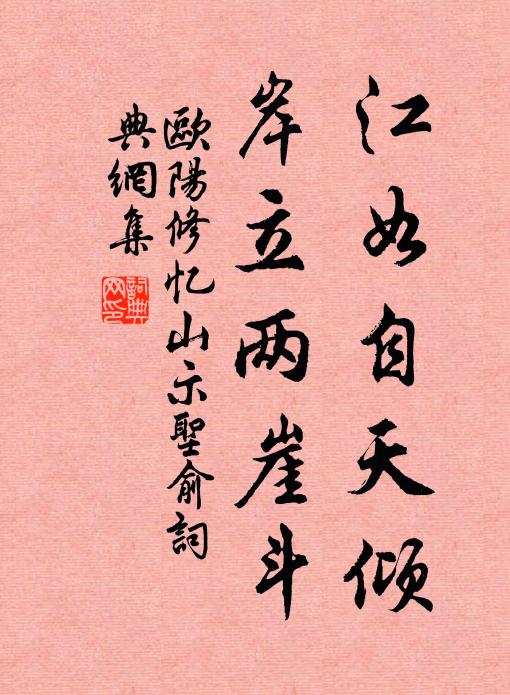 江如自天倾
岸立两崖斗
歐陽修忆山示聖俞詞
典網集
詞典網印